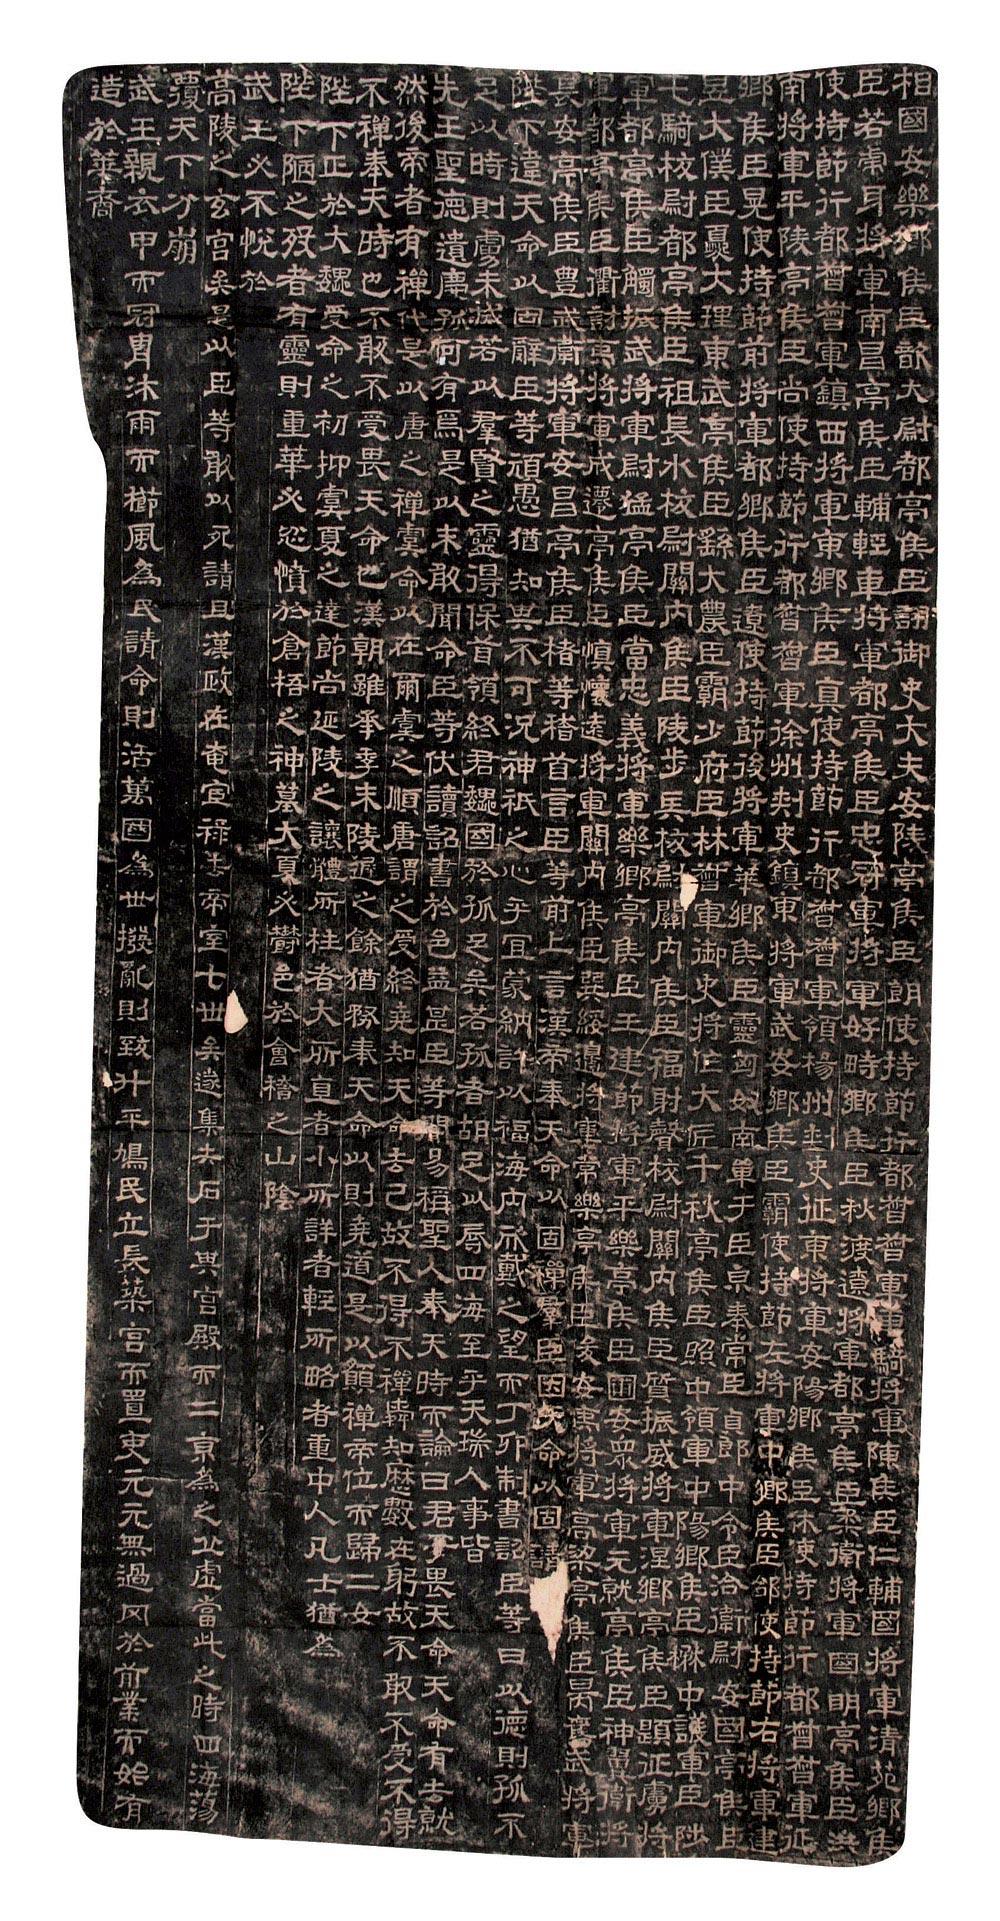 相國安樂鄉侯臣歆大尉都亭侯臣詡御史大夫安陵亭侯臣朗使持節行都督督軍車騎將軍陳侯臣仁輔國將軍清苑鄉侯
臣若虎牙將軍南昌亭侯臣輔輕車將軍都亭侯臣忠冠軍將軍好畤鄉侯臣秋渡遼將軍都亭侯臣柔衛將軍國明亭侯臣洪
使持節行都督督軍鎮西將軍東鄉侯臣真使持節行都督督軍領楊州刺史征東將軍安陽鄉侯臣休使持節行都督督軍征
南將軍平陵亭侯臣尚使持節行都督督軍徐州刺史鎮東將軍武安鄉侯臣霸使持節左將軍中鄉侯臣郃使持節右將軍建
鄉侯臣晃使持節前將軍都鄉侯臣遼使持節後將軍華鄉侯臣靈匈奴南單于臣泉奉常臣貞郎中令臣洽衛尉安國亭侯臣
昱大僕臣夔大理東武亭侯臣繇大農臣霸少府臣林督軍御史將作大匠千秋亭侯臣照中領軍中陽鄉侯臣楙中護軍臣陟
屯騎校尉都亭侯臣祖長水校尉關內侯臣陵步兵校尉關內侯臣福射聲校尉關內侯臣質振威將軍涅鄉亭侯臣題征虜將
軍都亭侯臣觸振武將軍尉猛亭侯臣當忠義將軍樂鄉亭侯臣生建節將軍平樂亭侯臣圃安眾將軍元就亭侯臣神翼衛將
軍都亭侯臣衢討夷將軍成遷亭侯臣慎懷遠將軍關內侯臣巽綏邊將軍常樂亭侯臣俊安夷將軍高梁亭侯臣昺奮武將軍
長安亭侯臣豐武衛將軍安昌亭侯臣褚等稽首言臣等前上言漢帝奉天命以固禪群臣因天命以固請
陛下違天命以固辭臣等頑愚猶知其不可況神祇之心乎宜蒙納許以福海內欣戴之望而丁卯制書詔臣等曰以德則孤不
足以時則虜未滅若以羣賢之靈得保首領終君魏國於孤足矣若孤者胡足以辱四海至乎天瑞人事皆
先王聖德遺慶孤何有焉是以未敢聞命臣等伏讀詔書於邑益甚臣等聞易稱聖人奉天時而論曰君子畏天命天命有去就
然後帝者有禪代是以唐之禪虞命以在爾虞之順唐謂之受終堯知天命去己故不得不禪舜知歷數在躬故不敢不受不得
不禪奉天時也不敢不受畏天命也漢朝雖承季末陵遲之餘猶務奉天命以則堯道是以願禪帝位而歸二女
陛下正於大魏受命之初抑虞夏之達節尚延陵之讓體所枉者大所直者小所詳者輕所略者重中人凡士猶為
陛下陋之歿者有靈則重華必忿憤於倉梧之神墓大夏必鬱邑於會稽之山陰
武王必不悅於
高陵之玄宮矣是以臣等敢以死請且漢政在奄宦祿去帝室七世矣遂集矢石于其宮殿而二京為之丘虛當此之時四海蕩
覆天下分崩
武王親衣甲而冠冑沐雨而櫛風為民請命則活萬國為世撥亂則致升平鳩民立長築宮而置吏元元無過罔於前業而始有
造於華裔